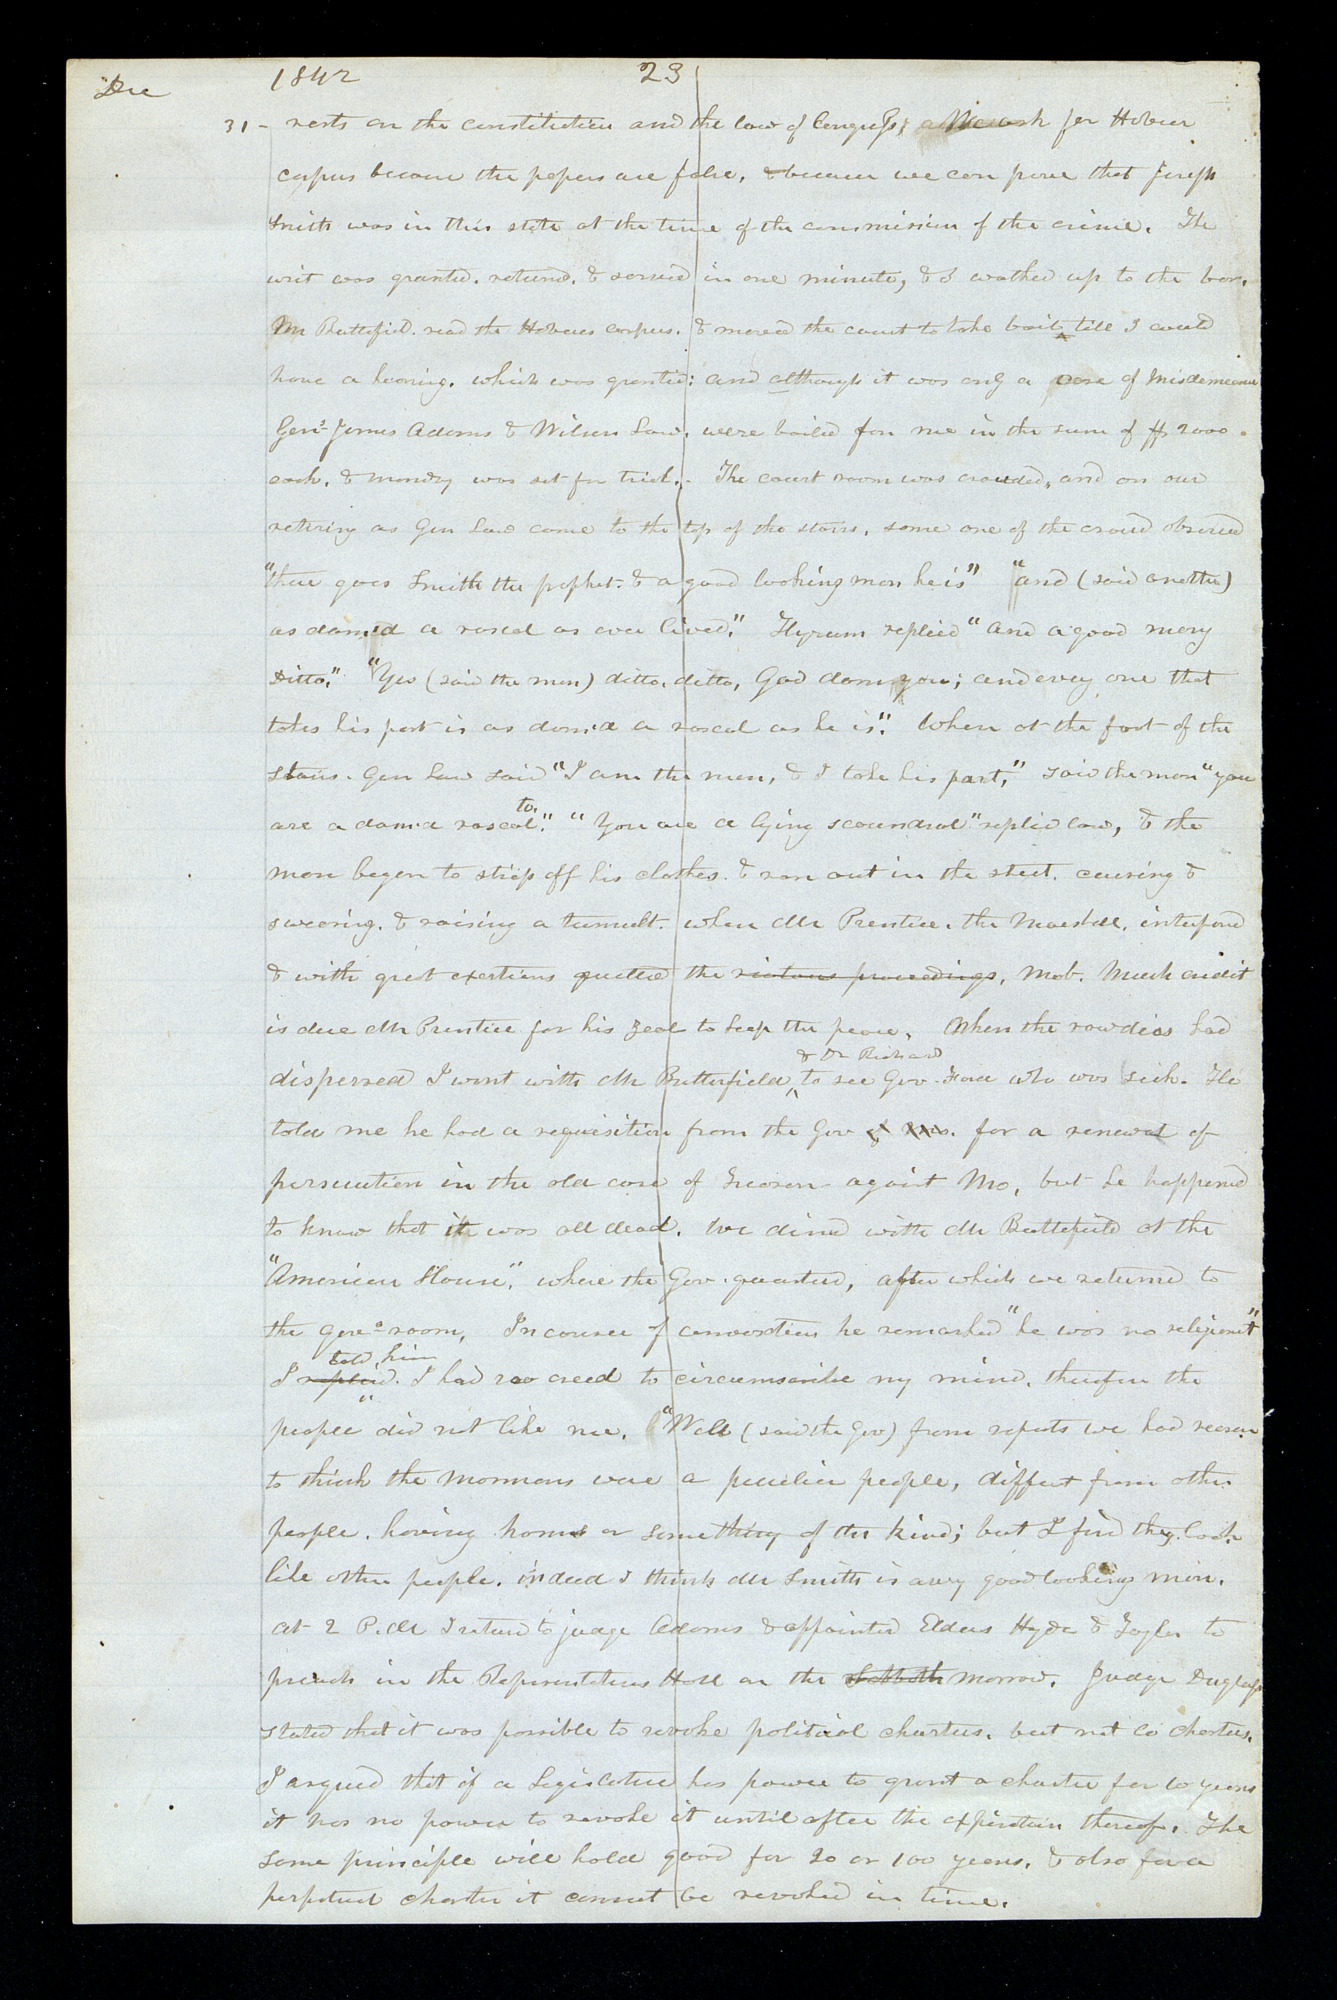 Dec 1842 23
31 - rests on the constitution and the law of Congress; ask for Habeus
corpus because the papers are false, & because we can prove that Joseph
Smith was in this state at the time of the commission of the crime. The
writ was granted. returned. & served in one minute, & I walked up to the bar.
Mr Butterfield. read the Habeus corpus. & moved the court to take bail, till I could
have a hearing. which was granted; and although it was only a case of misdemeanor
Gen.s James Adams & Wilson Law. were bailed for me in the sum of $2000.
each. & monday was set for trial. The court room was crowded, and on our
retiring as Gen Law came to the top of the stairs, some one of the crowd observed
"there goes Smith the prophet. & a good looking man he is" "and (said another)
as damnd a rascal as ever lived." Hyrum replied "and a good many
Ditto." "Yes (said the man) ditto. ditto, God damn you; and every one that
takes his part is as damd a rascal as he is". When at the foot of the
stairs. Gen Law said "I am the man, & I take his part," said the man "you
are a damnd rascal to." "You are a lying scoundrel" replied law, & the
man began to strip off his clothes. & ran out in the street. cursing &
swearing. & raising a tumult. when Mr Prentice. the Marshall. interfered
& with great exertions quelled the riotous proceedings. Mob. Much credit
is due Mr Prentice for his zeal to keep the peace. When the rowdies had
dispersed I went with Mr Butterfield & Dr Richard to see Gov. Ford who was sick. He
told me he had a requisition from the Gov of Mo. for a renewal of
persecution in the old case of treason against Mo, but he happened
to know that it was all dead. We dined with Mr Butterfield at the
"American House". where the Gov. quartered, after which we returned to
the Gov.s room. In course of conversation he remarked "he was no religionist"
I replied. told him I had no creed to circumscribe my mind. therefore the
people did not like me. "Well (said the Gov) from reports we had reason
to think the mormons were a peculiar people, different from other
people. having horns or something of the kind; but I find they look
like other people. indeed I think Mr Smith is a very good looking man.
at 2 P.M I returnd to judge Adams & appointed Elders Hyde & Taylor to
preach in the Representatives Hall on the Sabbath morrow. Judge Duglass
stated that it was possible to revoke political charters. but not Co charters.
I argued that if a Legislature has power to grant a charter for 10 years
it has no power to revoke it until after the expiration thereof. The
same principle will hold good for 20 or 100 years. & also for a
perpetual charter it cannot be revoked in time.